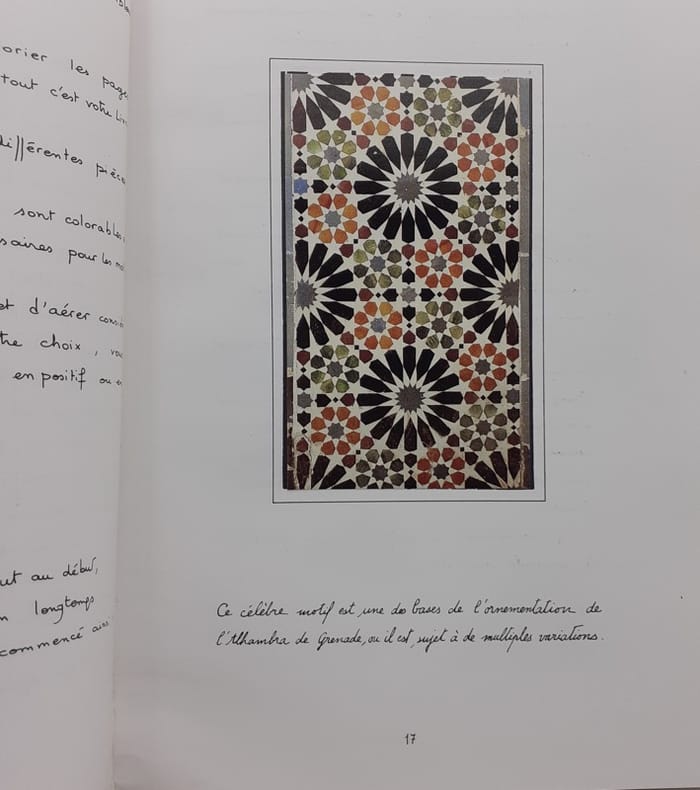 orier les pages
tout c'est votre Liv
différentes pièce
sont colorables
saires pour les mo
et d'aérer consi
tre choix, vou
en positif ou
ut au début,
n longtemps
commencé ains
Ce célèbre motif est une des bases de l'ornementation de
l'Alhambra de Grenade, ou il est sujet à de multiples variations.
17